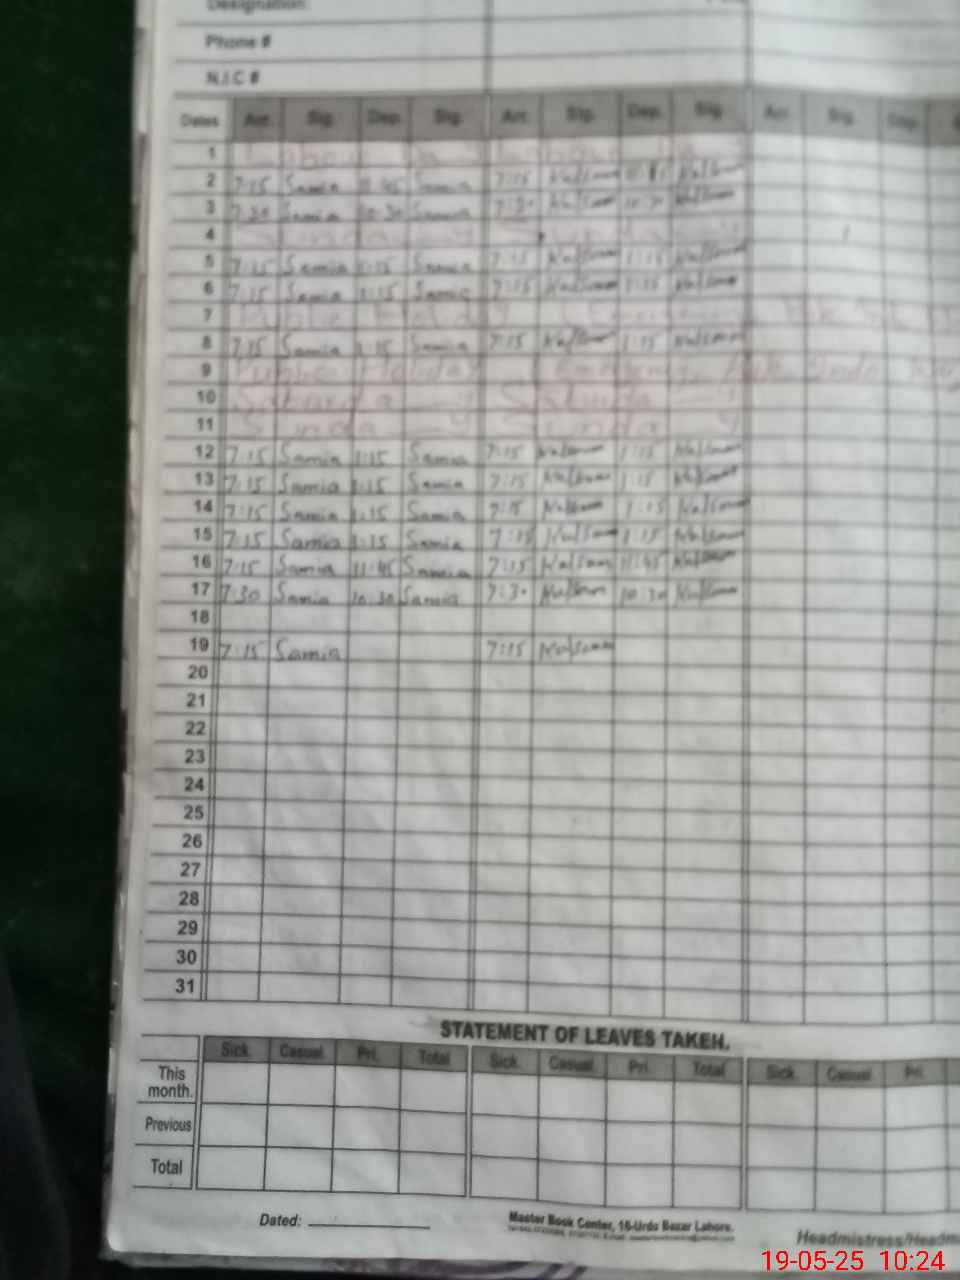 Designation:
Phone #
N.I.C #
Dates Arr. Sig. Dep. Sig. Arr. Sig. Dep. Sig. Arr. Sig. Dep.
1
2 7:15 Samia 11:45 Samia 7:15 Kulsoom Kulsoom
3 7:30 Samia 10:30 Samia 7:30 Kulsoom 10:30 Kulsoom
4 Sunda—y Sunda—y
5 7:15 Samia 1:15 Samia 7:15 Kulsoom 1:15 Kulsoom
6 7:15 Samia 1:15 Samia 7:15 Kulsoom 1:15 Kulsoom
7 Public Holiday
8 7:15 Samia 1:15 Samia 7:15 Kulsoom 1:15 Kulsoom
9 Public Holiday
10 Saturda—y Saturda—y
11 Sunda—y Sunda—y
12 7:15 Samia 1:15 Samia 7:15 Kulsoom 1:15 Kulsoom
13 7:15 Samia 1:15 Samia 7:15 Kulsoom 1:15 Kulsoom
14 7:15 Samia 1:15 Samia 7:15 Kulsoom 1:15 Kulsoom
15 7:15 Samia 1:15 Samia 7:15 Kulsoom 1:15 Kulsoom
16 7:15 Samia 11:45 Samia 7:15 Kulsoom 11:45 Kulsoom
17 7:30 Samia 10:30 Samia 7:30 Kulsoom 10:30 Kulsoom
18
19 7:15 Samia 7:15 Kulsoom
20
21
22
23
24
25
26
27
28
29
30
31
STATEMENT OF LEAVES TAKEN.
Sick. Casual. Pri. Total Sick. Casual. Pri. Total Sick. Casual. Pri.
This month.
Previous
Total
Dated:
Master Book Center, 16-Urdu Bazar Lahore.
Headmistress/Headm
19-05-25 10:24